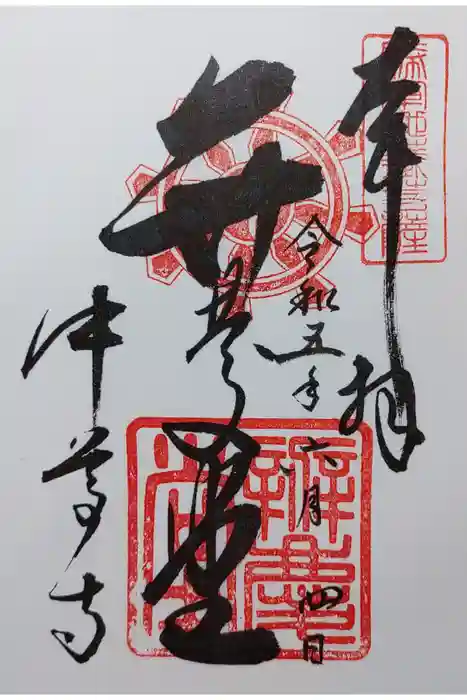 奉拝
令和五年六月四日
弁慶堂
中尊寺
辨慶堂